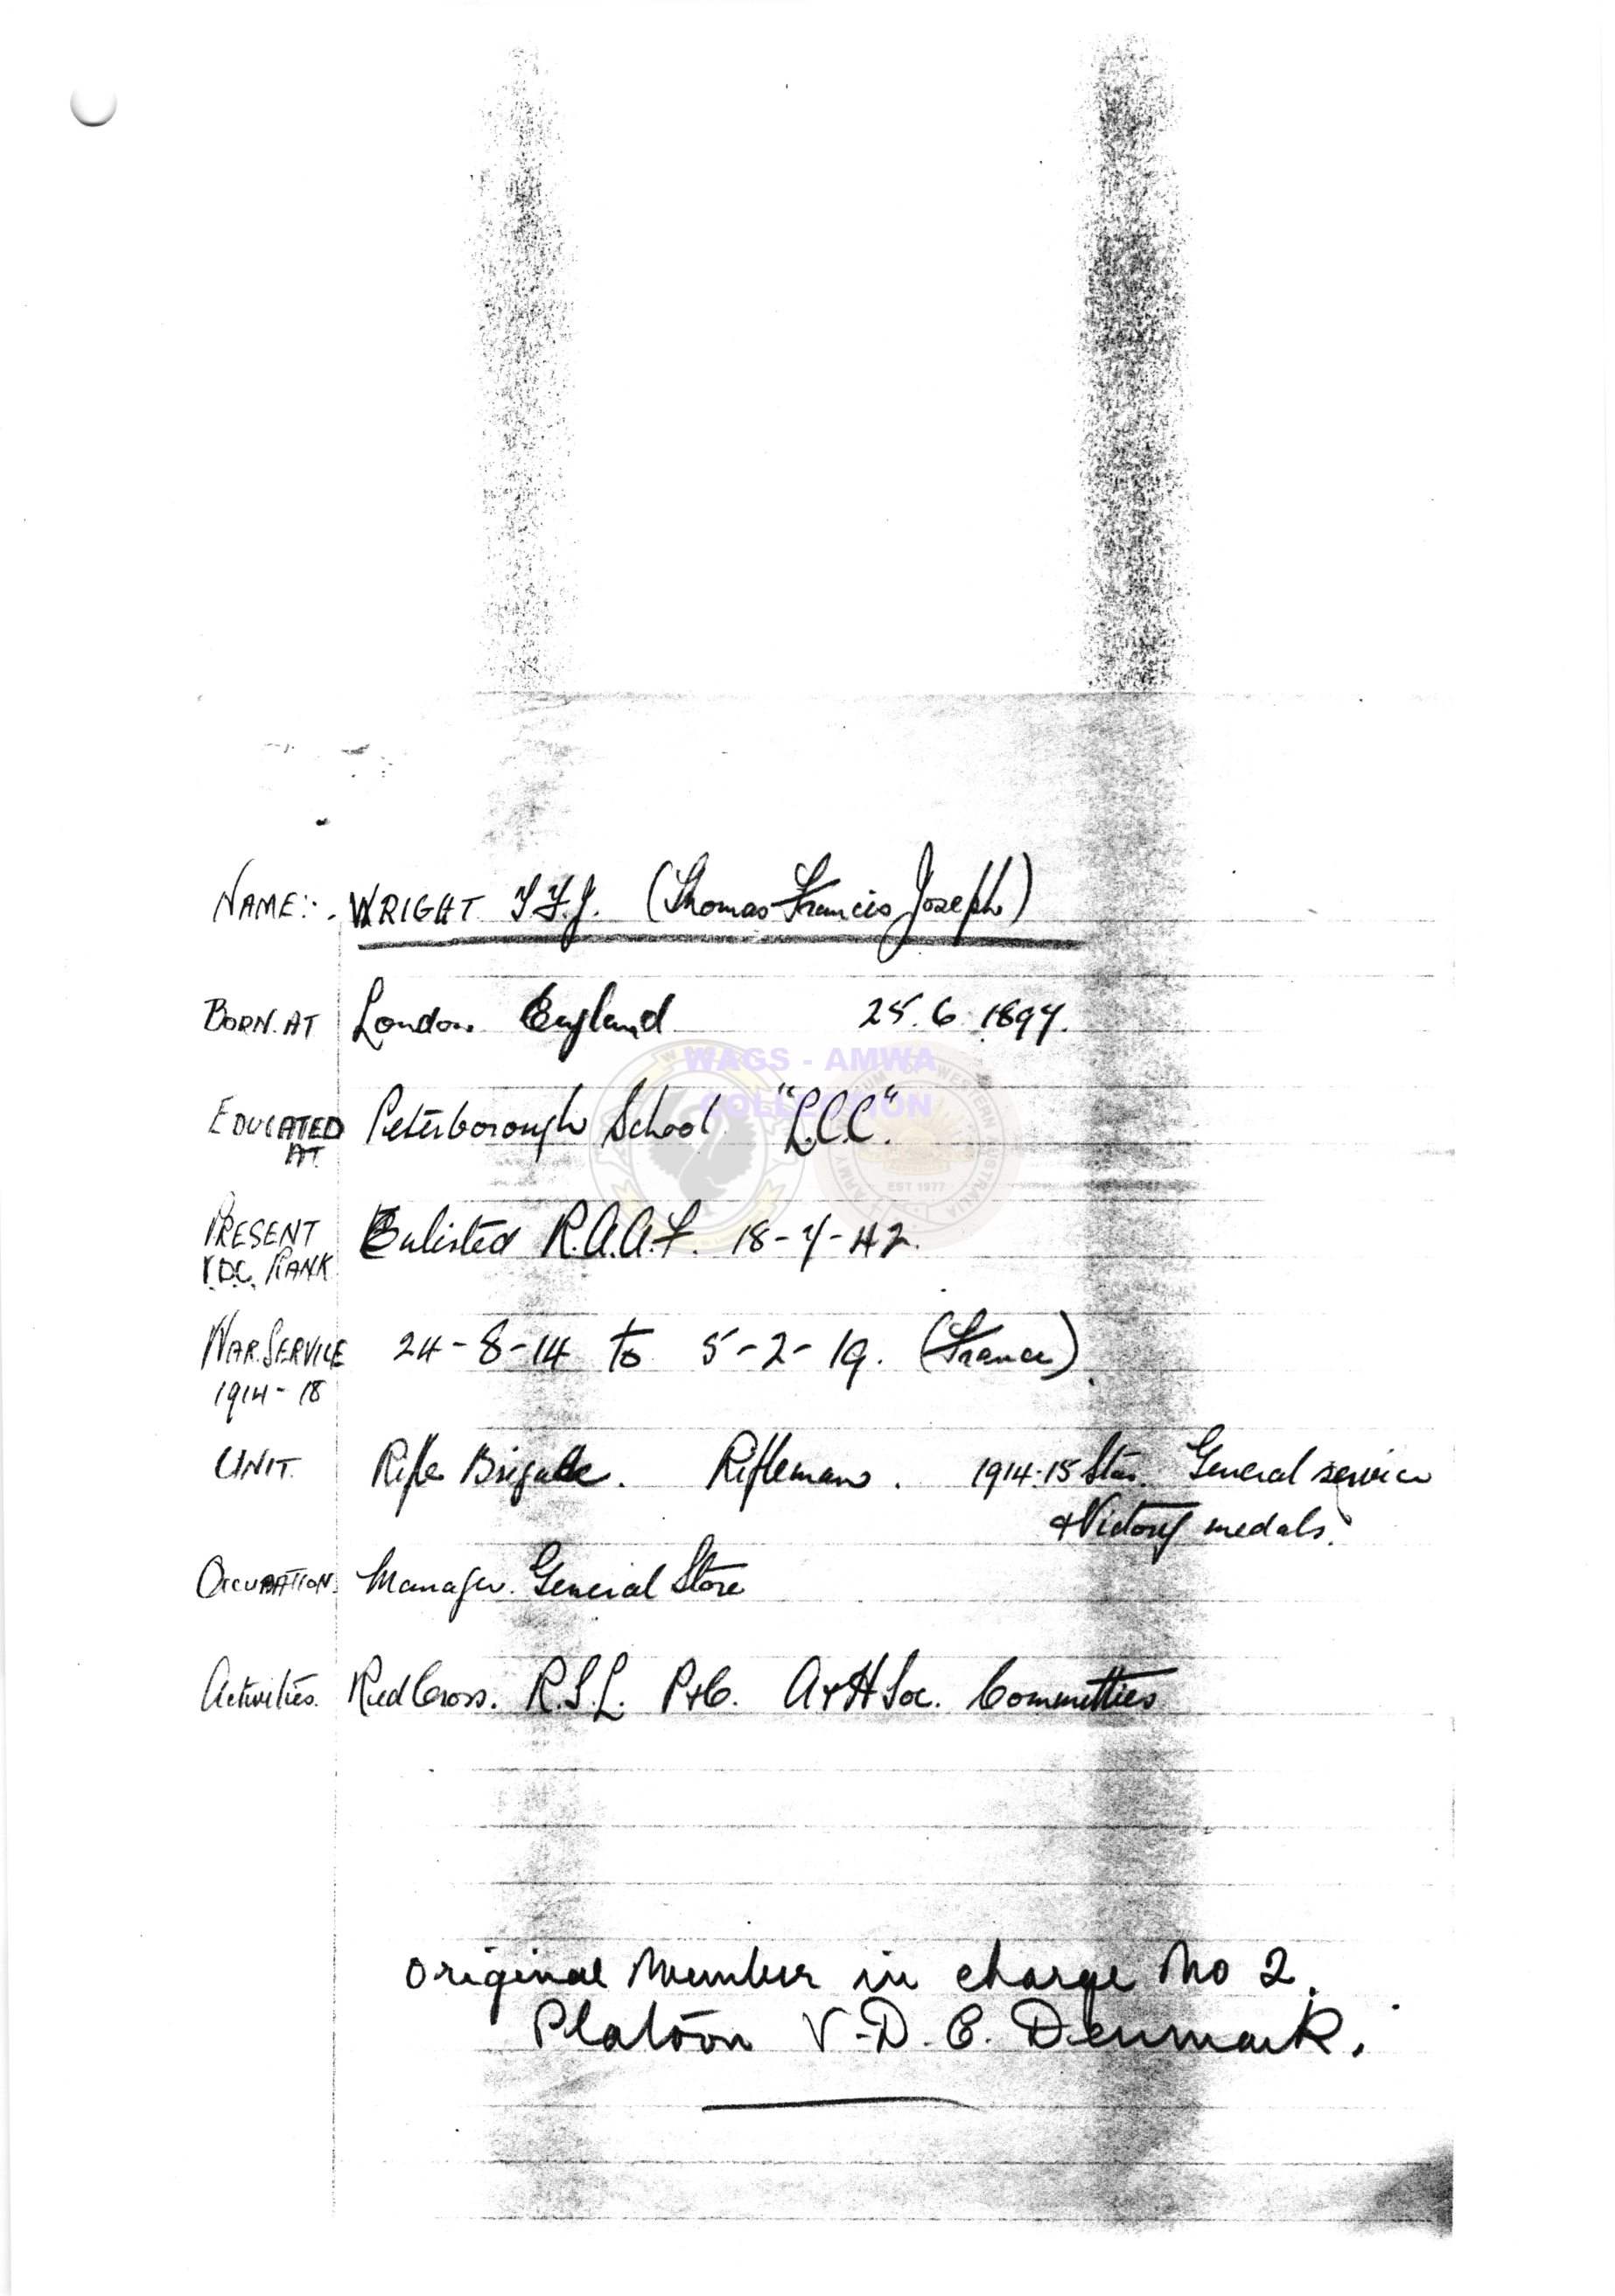 NAME:- WRIGHT T.F.J. (Thomas Francis Joseph)
BORN AT London England 25.6.1897.
WAGS - AMWA
COLLECTION
EDUCATED AT Peterborough School "L.C.C."
EST 1977
PRESENT V.D.C. RANK Enlisted R.A.A.F. 18-7-42.
WAR SERVICE 24-8-14 to 5-2-19. (France)
1914-18
UNIT Rifle Brigade. Rifleman. 1914-15 Star General service
+ Victory medals.
OCCUPATION Manager. General Store
Activities. Red Cross. R.S.L. P+C. A+H Soc. Committies
Original Member in charge No 2.
Platoon V.D.C. Denmark.